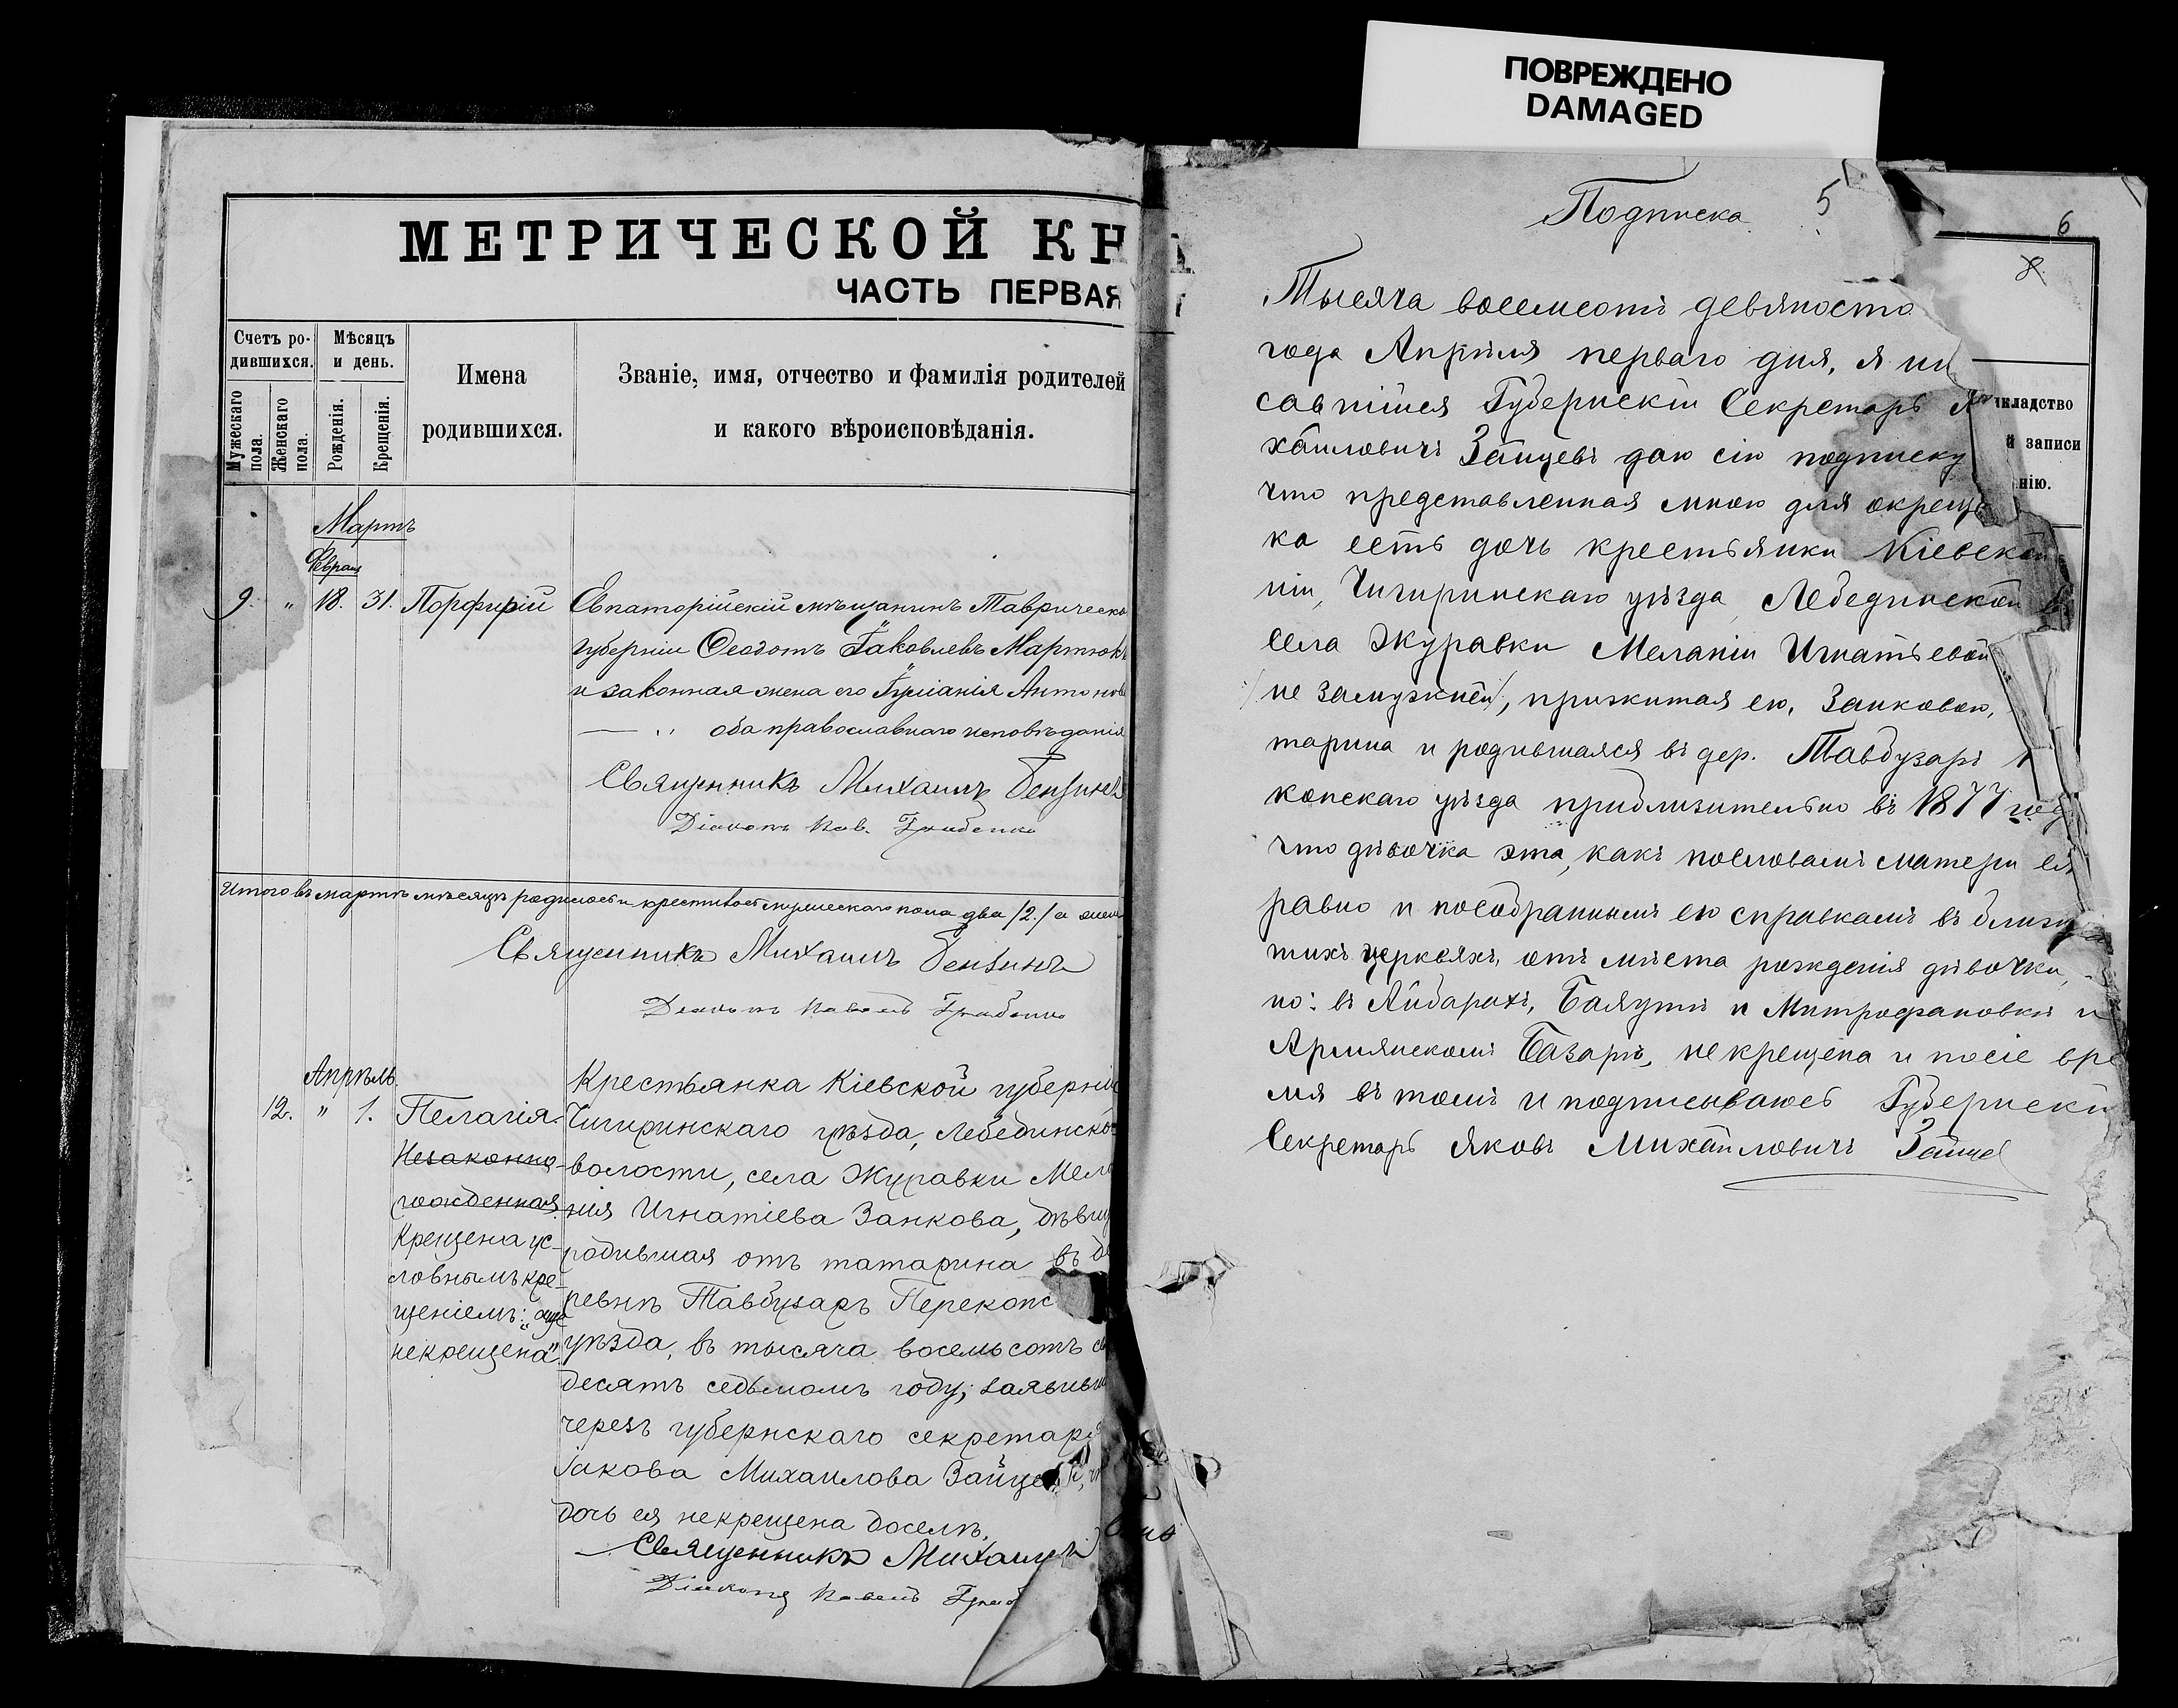 ПОВРЕЖДЕНО
DAMAGED
МЕТРИЧЕСКОЙ КН
ЧАСТЬ ПЕРВАЯ
Счетъ ро-
дившихся.
Мужескаго
пола.
Женскаго
пола.
Мѣсяцъ
и день.
Рожденія.
Крещенія.
Имена
родившихся.
Званіе, имя, отчество и фамилія родителей
и какого вѣроисповѣданія.
Мартъ
Февраля
9. " 18. 31. Порфирій
Евпаторійскій мѣщанинъ Таврическо
губерніи Ѳеодотъ Іаковлевъ Мартюк
и законная жена его Іуліанія Антонов
оба православнаго исповѣданія
Священникъ Михаилъ
Діаконъ Пав. Грабенко
Итого въ мартѣ мѣсяцѣ родилось и крестилось мужескаго пола два /2./ а жен
Священникъ Михаилъ
Діаконъ Павелъ Грабенко
Апрѣль
12. " 1. Пелагія.
Незаконно-
рожденная
Крещена ус-
ловнымъ кре-
щеніемъ: „аще
некрещена".
Крестьянка Кіевской губерніи
Чигиринскаго уѣзда, Лебединской
волости, села Журавки Мела
нія Игнатіева Занкова, дѣвиц
родившая отъ татарина въ де
ревнѣ Тавбузаръ Перекопс
уѣзда, въ тысяча восемьсотъ се
десятъ седьмомъ году; заявивш
черезъ губернскаго секретаря
Іакова Михаилова Зайцева, ч
дочь ея некрещена доселѣ.
Священникъ Михаилъ
Діаконъ Павелъ Граб
Подписка 5
6
8.
Тысяча восемсотъ девяносто
года Апрѣля перваго дня, я ни
савшійся Губернскій Секретарь Я
хайловичъ Зайцевъ даю сію подписку
что представленная мною для окрещ
ка есть дочь крестьянки Кіевской
ніи, Чигиринскаго уѣзда, Лебединской в
села Журавки Меланіи Игнатьевой
/не замужней/, прижитая ею, Занковою,
тарина и родившаяся въ дер. Тавбузаръ
копскаго уѣзда приблизительно въ 1877 год
что дѣвочка эта, какъ пословамъ матери ея
равно и пособраннымъ ею справкамъ въ ближ
тихъ церквяхъ, отъ мѣста рожденія дѣвочки,
но: въ Айбарахъ, Баяутѣ и Митрофановкѣ и
Армянскомъ Базарѣ, не крещена и посіе вре
мя въ томъ и подписываюсь Губернскій
Секретарь Яковъ Михайловичъ Зайцев
кладство
й записи
нію.